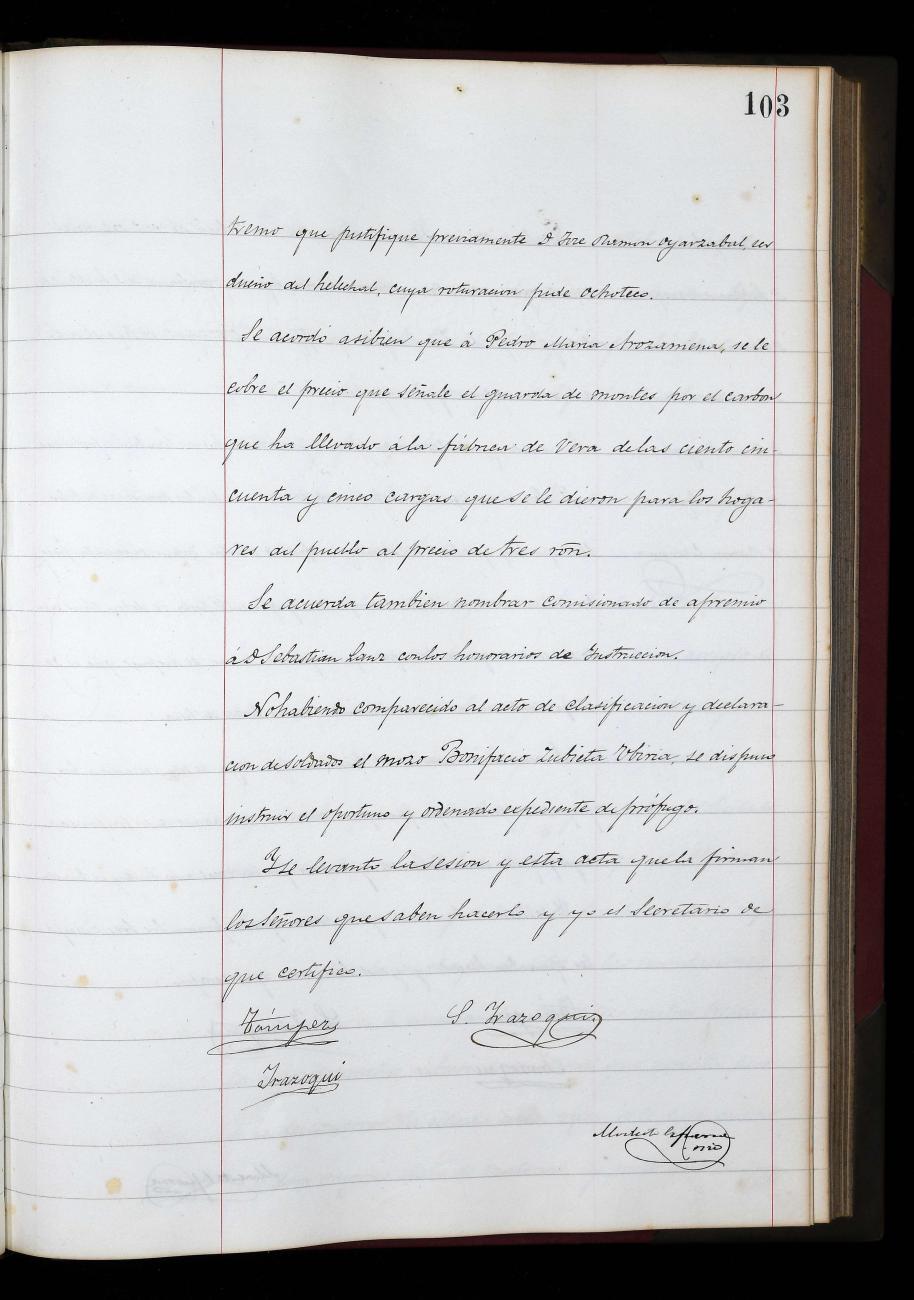 103
tremo que justifique previamente D. Jose Ramon Oyarzabal, ser
dueño del helechal, cuya roturacion pide Ochoteco.
Se acordó asibien que á Pedro Maria Arozamena, se le
cobre el precio que señale el guarda de montes por el carbon
que ha llevado á la fábrica de Vera de las ciento cin-
cuenta y cinco cargas que se le dieron para los hoga-
res del pueblo al precio de tres rõn.
Se acuerda tambien nombrar comisionado de apremio
á D Sebastian Lanz con los honorarios de Instruccion.
No habiendo comparecido al acto de clasificacion y declara-
cion de soldados el mozo Bonifacio Zubieta Ybiria, se dispuso
instruir el oportuno y ordenado expediente de prófugo.
Y se levantó la sesion y esta acta que la firman
los Señores que saben hacerlo y yo el Secretario de
que certifico.
S. Yrazoqui
Yrazoqui
Modesto